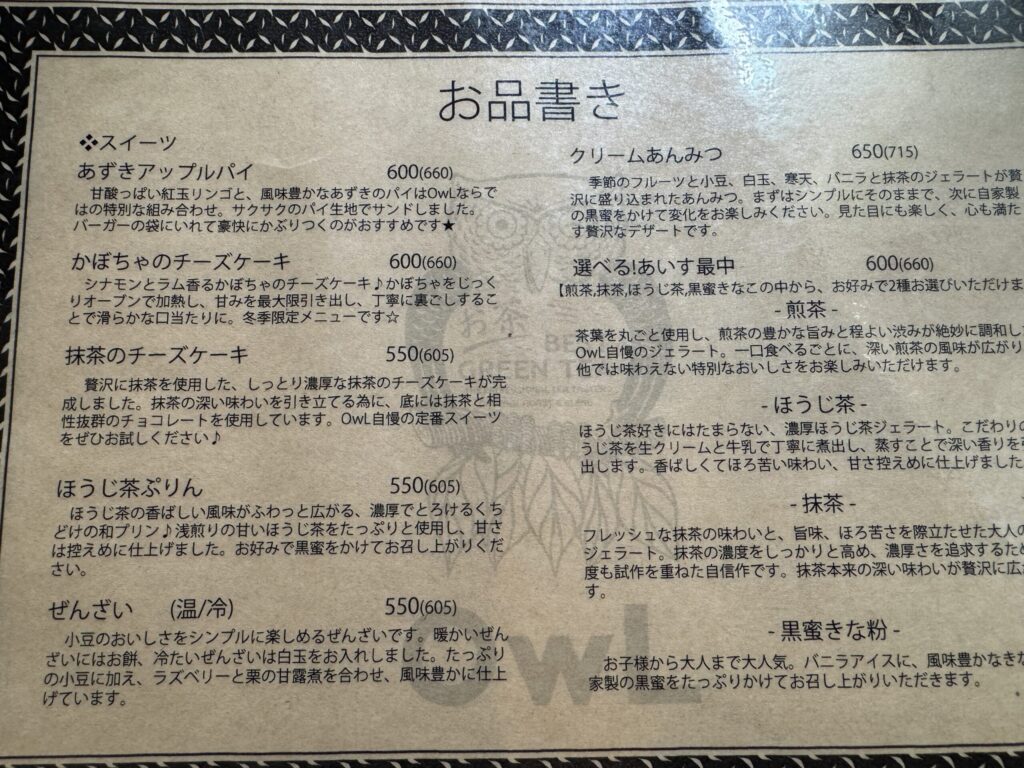 お品書き
❖スイーツ
あずきアップルパイ 600(660)
甘酸っぱい紅玉リンゴと、風味豊かなあずきのパイはOwLならで
はの特別な組み合わせ。サクサクのパイ生地でサンドしました。
バーガーの袋にいれて豪快にかぶりつくのがおすすめです★
かぼちゃのチーズケーキ 600(660)
シナモンとラム香るかぼちゃのチーズケーキ♪かぼちゃをじっく
りオーブンで加熱し、甘みを最大限引き出し、丁寧に裏ごしするこ
とで滑らかな口当たりに。冬季限定メニューです☆
抹茶のチーズケーキ 550(605)
贅沢に抹茶を使用した、しっとり濃厚な抹茶のチーズケーキが完
成しました。抹茶の深い味わいを引き立てる為に、底には抹茶と相
性抜群のチョコレートを使用しています。OwL自慢の定番スイーツ
をぜひお試しください♪
ほうじ茶ぷりん 550(605)
ほうじ茶の香ばしい風味がふわっと広がる、濃厚でとろけるくち
どけの和プリン♪浅煎りの甘いほうじ茶をたっぷりと使用し、甘さ
は控えめに仕上げました。お好みで黒蜜をかけてお召し上がりくだ
さい。
ぜんざい (温/冷) 550(605)
小豆のおいしさをシンプルに楽しめるぜんざいです。暖かいぜん
ざいにはお餅、冷たいぜんざいは白玉をお入れしました。たっぷり
の小豆に加え、ラズベリーと栗の甘露煮を合わせ、風味豊かに仕上
げています。
クリームあんみつ 650(715)
季節のフルーツと小豆、白玉、寒天、バニラと抹茶のジェラートが贅
沢に盛り込まれたあんみつ。まずはシンプルにそのままで、次に自家製
の黒蜜をかけて変化をお楽しみください。見た目にも楽しく、心も満た
す贅沢なデザートです。
選べる!あいす最中 600(660)
【煎茶,抹茶,ほうじ茶,黒蜜きなこの中から、お好みで2種お選びいただけま
- 煎茶 -
茶葉を丸ごと使用し、煎茶の豊かな旨みと程よい渋みが絶妙に調和し
OwL自慢のジェラート。一口食べるごとに、深い煎茶の風味が広がり
他では味わえない特別なおいしさをお楽しみいただけます。
- ほうじ茶 -
ほうじ茶好きにはたまらない、濃厚ほうじ茶ジェラート。こだわりの
うじ茶を生クリームと牛乳で丁寧に煮出し、蒸すことで深い香りを
出します。香ばしくてほろ苦い味わい、甘さ控えめに仕上げました
- 抹茶 -
フレッシュな抹茶の味わいと、旨味、ほろ苦さを際立たせた大人の
ジェラート。抹茶の濃度をしっかりと高め、濃厚さを追求するため
度も試作を重ねた自信作です。抹茶本来の深い味わいが贅沢に広が
す。
- 黒蜜きな粉 -
お子様から大人まで大人気。バニラアイスに、風味豊かなきな
家製の黒蜜をたっぷりかけてお召し上がりいただきます。
OwL